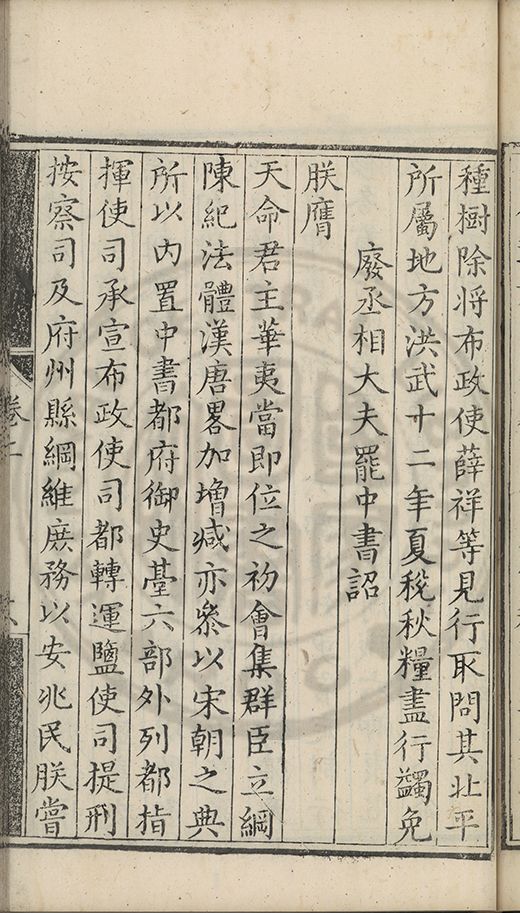 種樹除将布政使薛祥等見行取問其北平
所屬地方洪武十二年夏稅秋糧盡行蠲免
廢丞相大夫罷中書詔
朕膺
天命君主華夷當即位之初會集群臣立綱
陳紀法體漢唐畧加增減亦參以宋朝之典
所以內置中書都府御史臺六部外列都指
揮使司承宣布政使司都轉運鹽使司提刑
按察司及府州縣綱維庶務以安兆民朕嘗